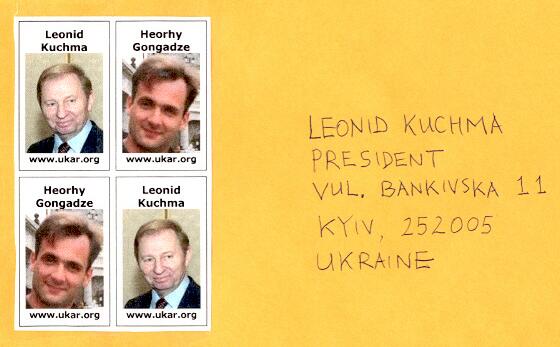 Leonid
Kuchma
www.ukar.org
Heorhy
Gongadze
www.ukar.org
Heorhy
Gongadze
www.ukar.org
Leonid
Kuchma
www.ukar.org
LEONID KUCHMA
PRESIDENT
VUL. BANKIVSKA 11
KYIV, 252005
UKRAINE